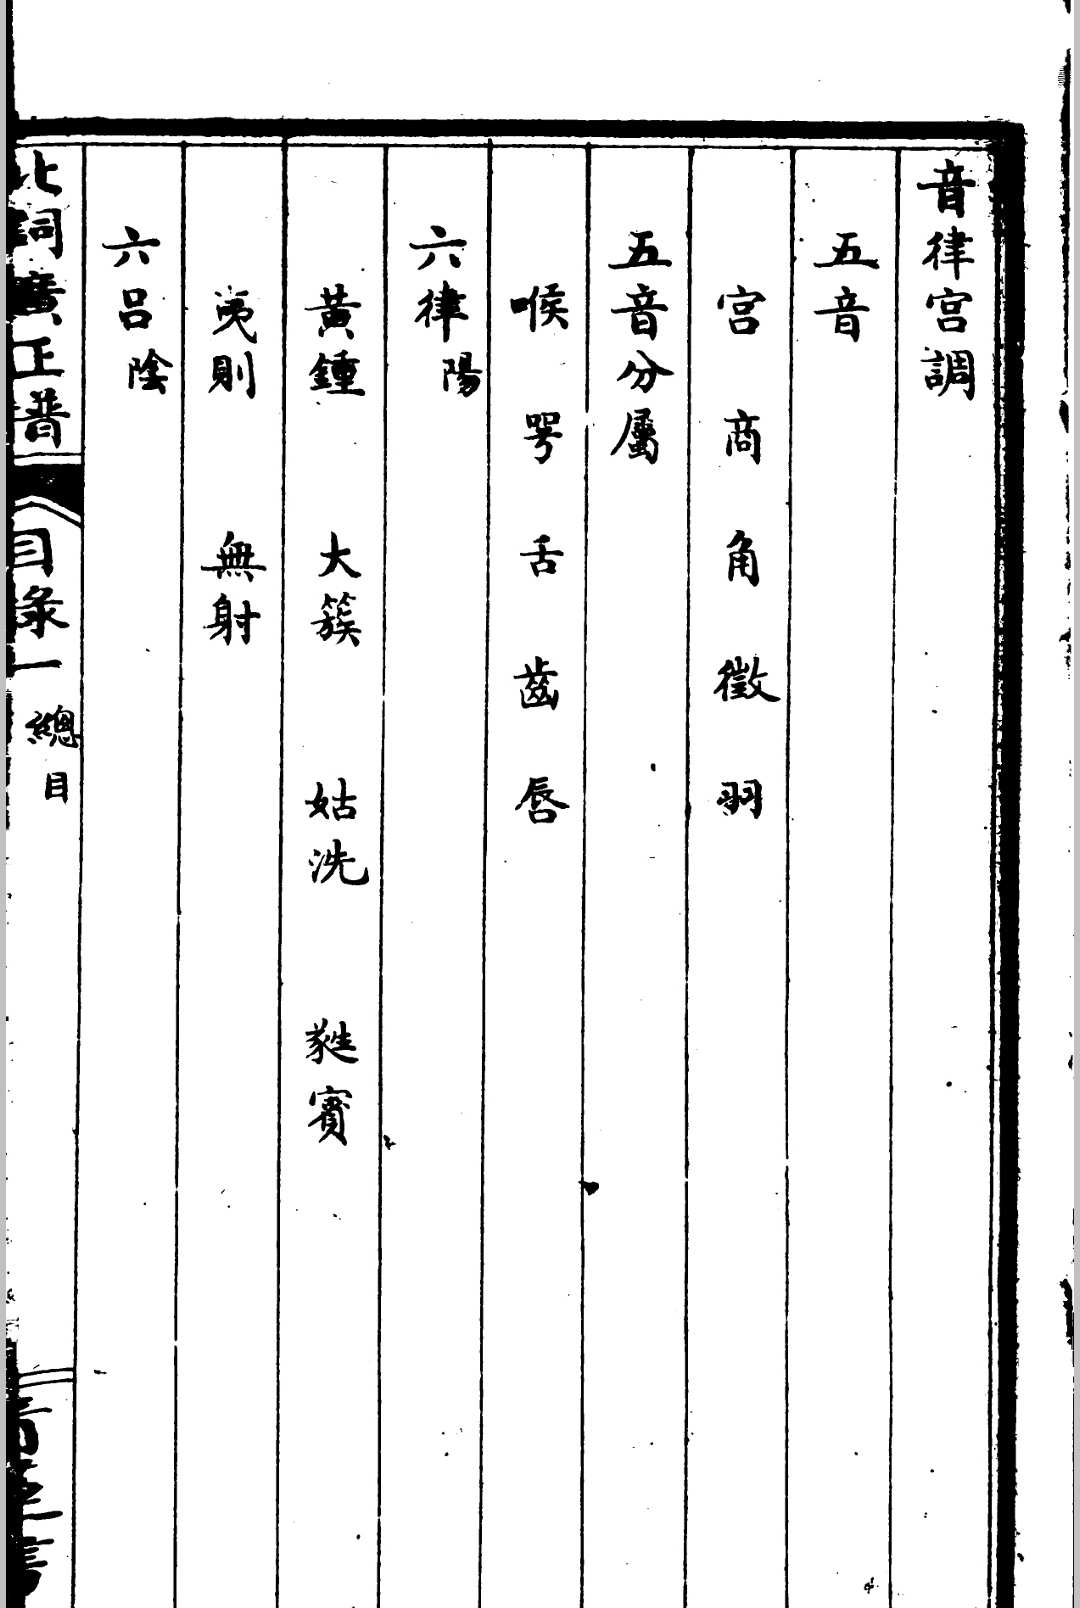 音律宮調
五音
宮 商 角 徵 羽
五音分屬
喉 咢 舌 齒 唇
六律陽
黃鍾 大簇 姑洗 蕤賓
夷則 無射
六呂陰
北詞廣正譜 目錄一 總目